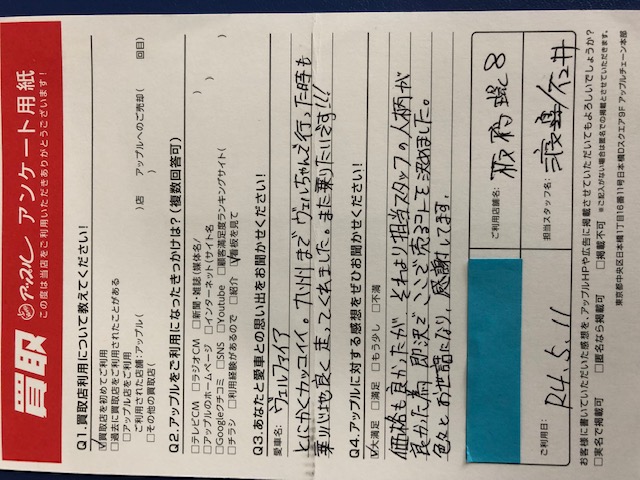 買取 アップル アンケート用紙
この度は当店をご利用いただきありがとうございます!
Q1.買取店利用について教えてください!
☑買取店を初めてご利用
□過去に買取店をご利用されたことがある
□アップル店をご利用
ご利用された店舗:アップル( )店 アップルへのご売却( 回目)
□その他の買取店( )
Q2.アップルをご利用になったきっかけは?(複数回答可)
□テレビCM □ラジオCM □新聞・雑誌(媒体名/ )
□アップルのホームページ □インターネット(サイト名 )
□Googleクチコミ □SNS □Youtube □顧客満足度ランキングサイト( )
□チラシ □利用経験があるので □紹介 ☑看板を見て
Q3.あなたと愛車との思い出をお聞かせください!
愛車名: ヴェルファイア
とにかくカッコイイ。九州までヴェルちゃんで行った時も
乗り心地良く走ってくれました。また乗りたいです!!!
Q4.アップルに対する感想をぜひお聞かせください!
☑大満足 □満足 □もう少し □不満
価格も良かったが それより担当スタッフの人柄が
良かった為 即決でここで売るコトを決めました。
色々とお世話になり、感謝してます。
ご利用店舗名: 板橋環8
ご利用日: R4.5.11
担当スタッフ名:
お客様に書いていただいた感想を、アップルHPや広告に掲載させていただいてもよろしいでしょうか?
□実名で掲載可 □匿名なら掲載可 □掲載不可 ※ご記入がない場合は匿名での掲載とさせていただきます。
東京都中央区日本橋1丁目16番11号日本橋Dスクエア9F アップルチェーン本部